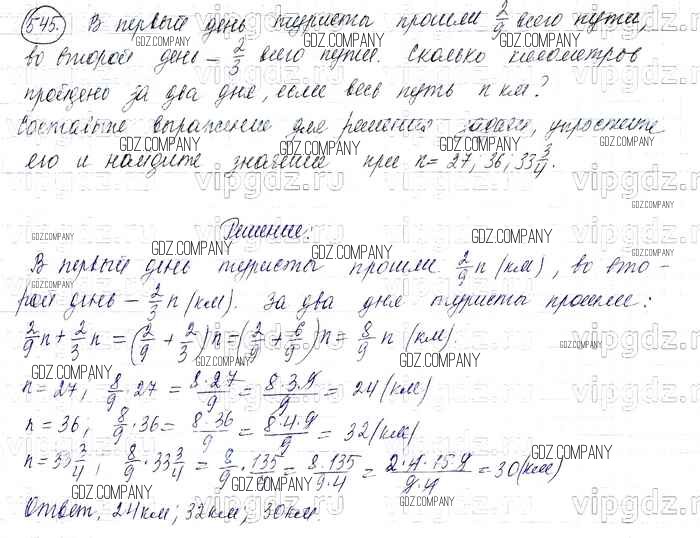 545. В первый день туристы прошли 2/9 всего пути,
во второй день – 2/3 всего пути. Сколько километров
пройдено за два дня, если весь путь n км?
Составьте выражение для решения задачи, упростите
его и найдите значение при n = 27; 36; 33 3/4.
Решение:
В первый день туристы прошли 2/9 n (км), во вто-
рой день – 2/3 n (км). За два дня туристы прошли:
2/9 n + 2/3 n = (2/9 + 2/3) n = (2/9 + 6/9) n = 8/9 n (км).
n = 27, 8/9 · 27 = 8·27/9 = 8·3·9/9 = 24 (км)
n = 36; 8/9 · 36 = 8·36/9 = 8·4·9/9 = 32 (км)
n = 33 3/4, 8/9 · 33 3/4 = 8/9 · 135/4 = 8·135/9·4 = 2·4·15·9/9·4 = 30 (км)
Ответ: 24 км; 32 км; 30 км.
GDZ.COMPANY
vipgdz.ru